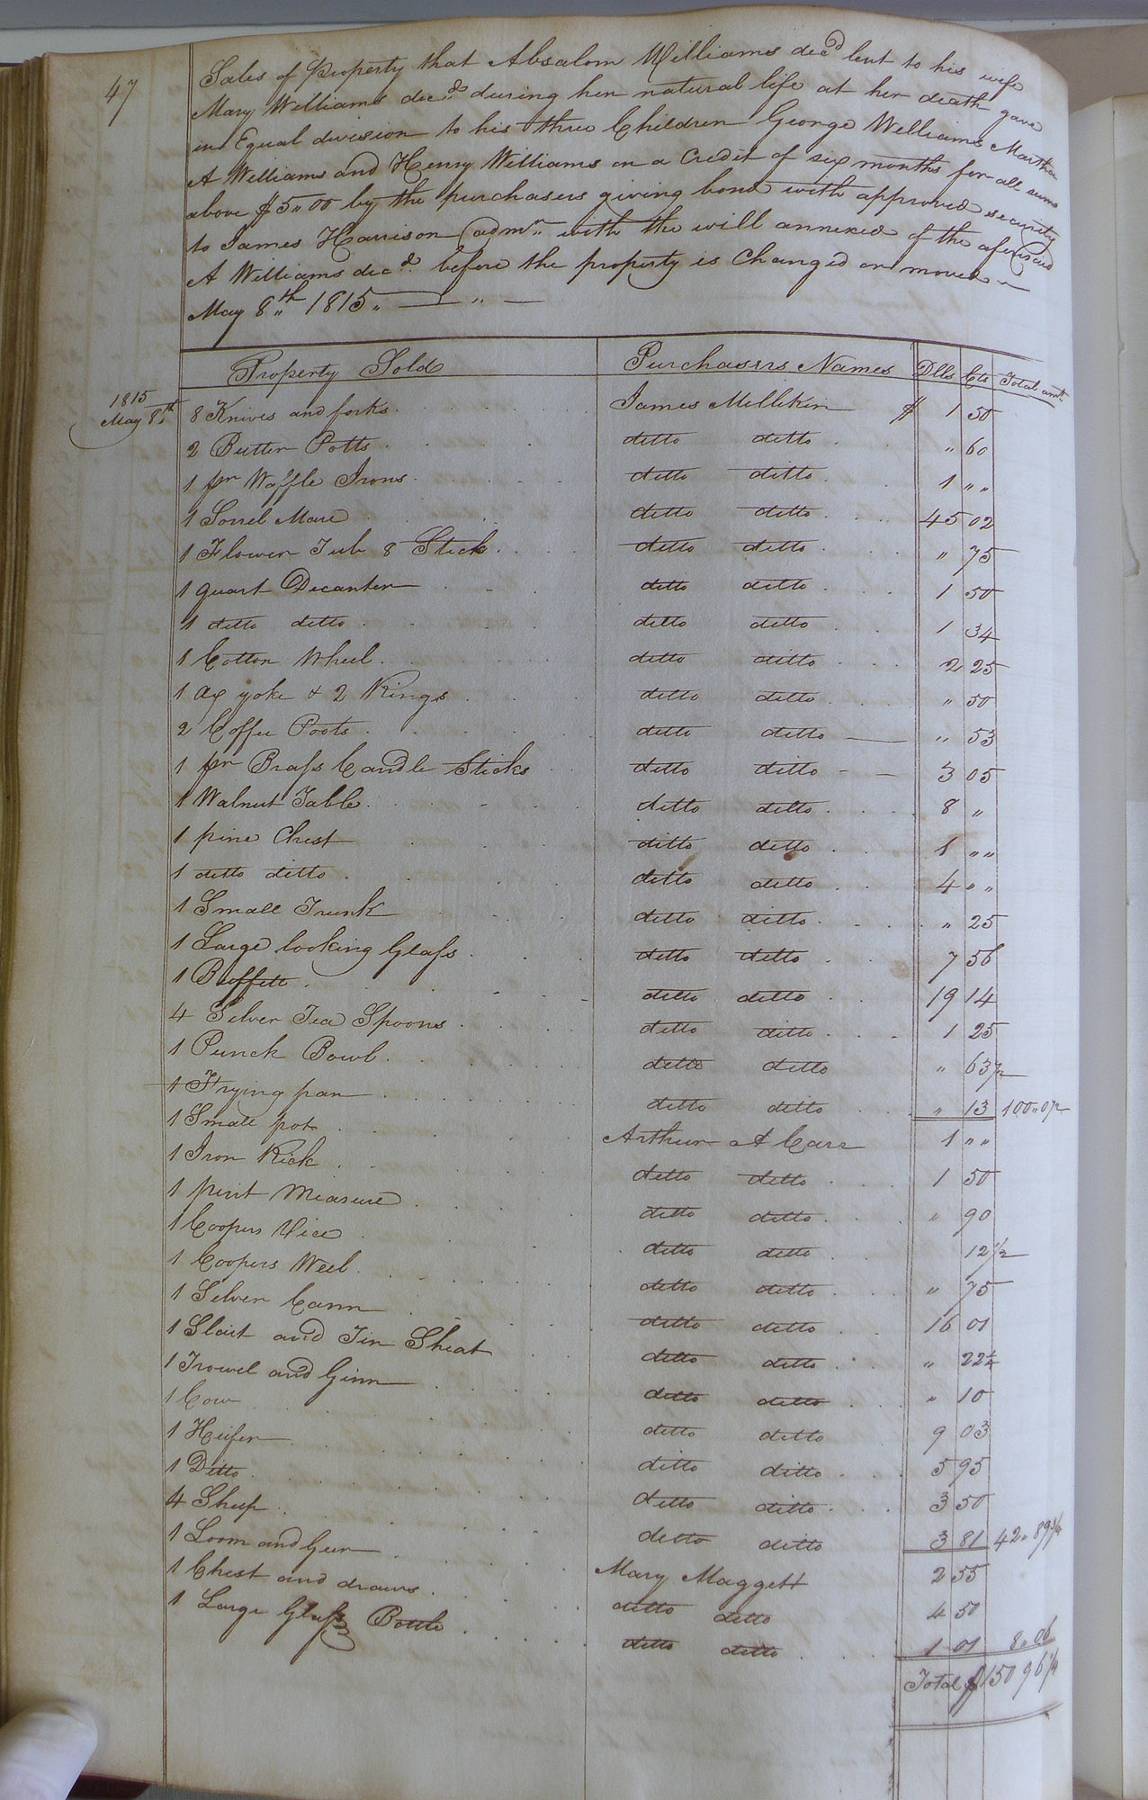 47
Sales of Property that Absalom Williams decd lent to his wife
Mary Williams decd during her natural life at her death gave
in Equal division to his three Children George Williams Martha
A Williams and Henry Williams on a Credit of six months for all sums
above $5"00 by the purchasers giving bond with approved security
to James Harrison admr" with the will annexed of the aforesaid
A Williams decd before the property is Changed or moved
May 8th 1815"
Property Sold Purchasers Names Dlls Cts Total amt
1815
May 8th 8 Knives and forks James Millikin $ 1 50
2 Butter Potts ditto ditto " 60
1 pr Waffle Irons ditto ditto 1 " "
1 Sorrel Mare ditto ditto 45 02
1 Flower Tub & Stick ditto ditto " 75
1 quart Decanter ditto ditto 1 50
1 ditto ditto ditto ditto 1 34
1 Cotton Wheel ditto ditto 2 25
1 ox yoke & 2 Rings ditto ditto " 50
2 Coffee Poots ditto ditto " 53
1 pr Brass Candle Sticks ditto ditto 3 05
1 Walnut Table ditto ditto 8 "
1 pine Chest ditto ditto 1 " "
1 ditto ditto ditto ditto 4 " "
1 Small Trunk ditto ditto " 25
1 Large looking Glass ditto ditto 7 56
1 Buffett ditto ditto 19 14
4 Silver Tea Spoons ditto ditto 1 25
1 Punch Bowl ditto ditto " 63½
1 Frying pan ditto ditto " 13 100"0½
1 Small pot Arthur A Carr 1 " "
1 Iron Rick ditto ditto 1 50
1 pint Measure ditto ditto " 90
1 Coopers Vice ditto ditto 12½
1 Coopers Weel ditto ditto " 75
1 Silver Cann ditto ditto 16 01
1 Slait and Tin Sheat ditto ditto " 22¼
1 Trowel and Ginn ditto ditto " 10
1 Cow ditto ditto 9 03
1 Heifer ditto ditto 5 95
1 Ditto ditto ditto 3 50
4 Sheep ditto ditto 3 81 42"89¾
1 Loom and Geer Mary Maggett 2 55
1 Chest and draws ditto ditto 4 50
1 Large Glass Bottle ditto ditto 1 01 8"06
Total $150 96¼